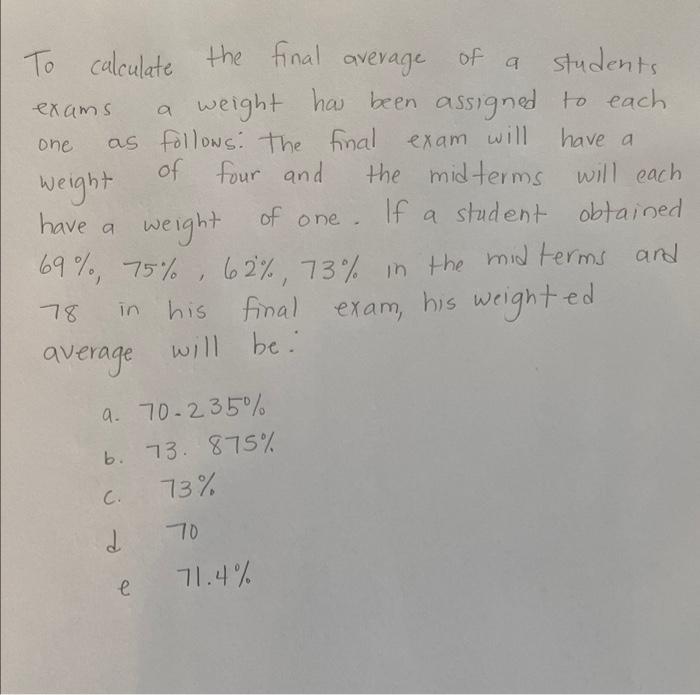 To calculate the final average of a students
exams a weight has been assigned to each
one as follows: The final exam will have a
weight of four and the midterms will each
have a weight of one. If a student obtained
69%, 75%, 62%, 73% in the mid terms and
78 in his final exam, his weighted
average will be:
a. 70.235%
b. 73.875%
c. 73%
d 70
e 71.4%